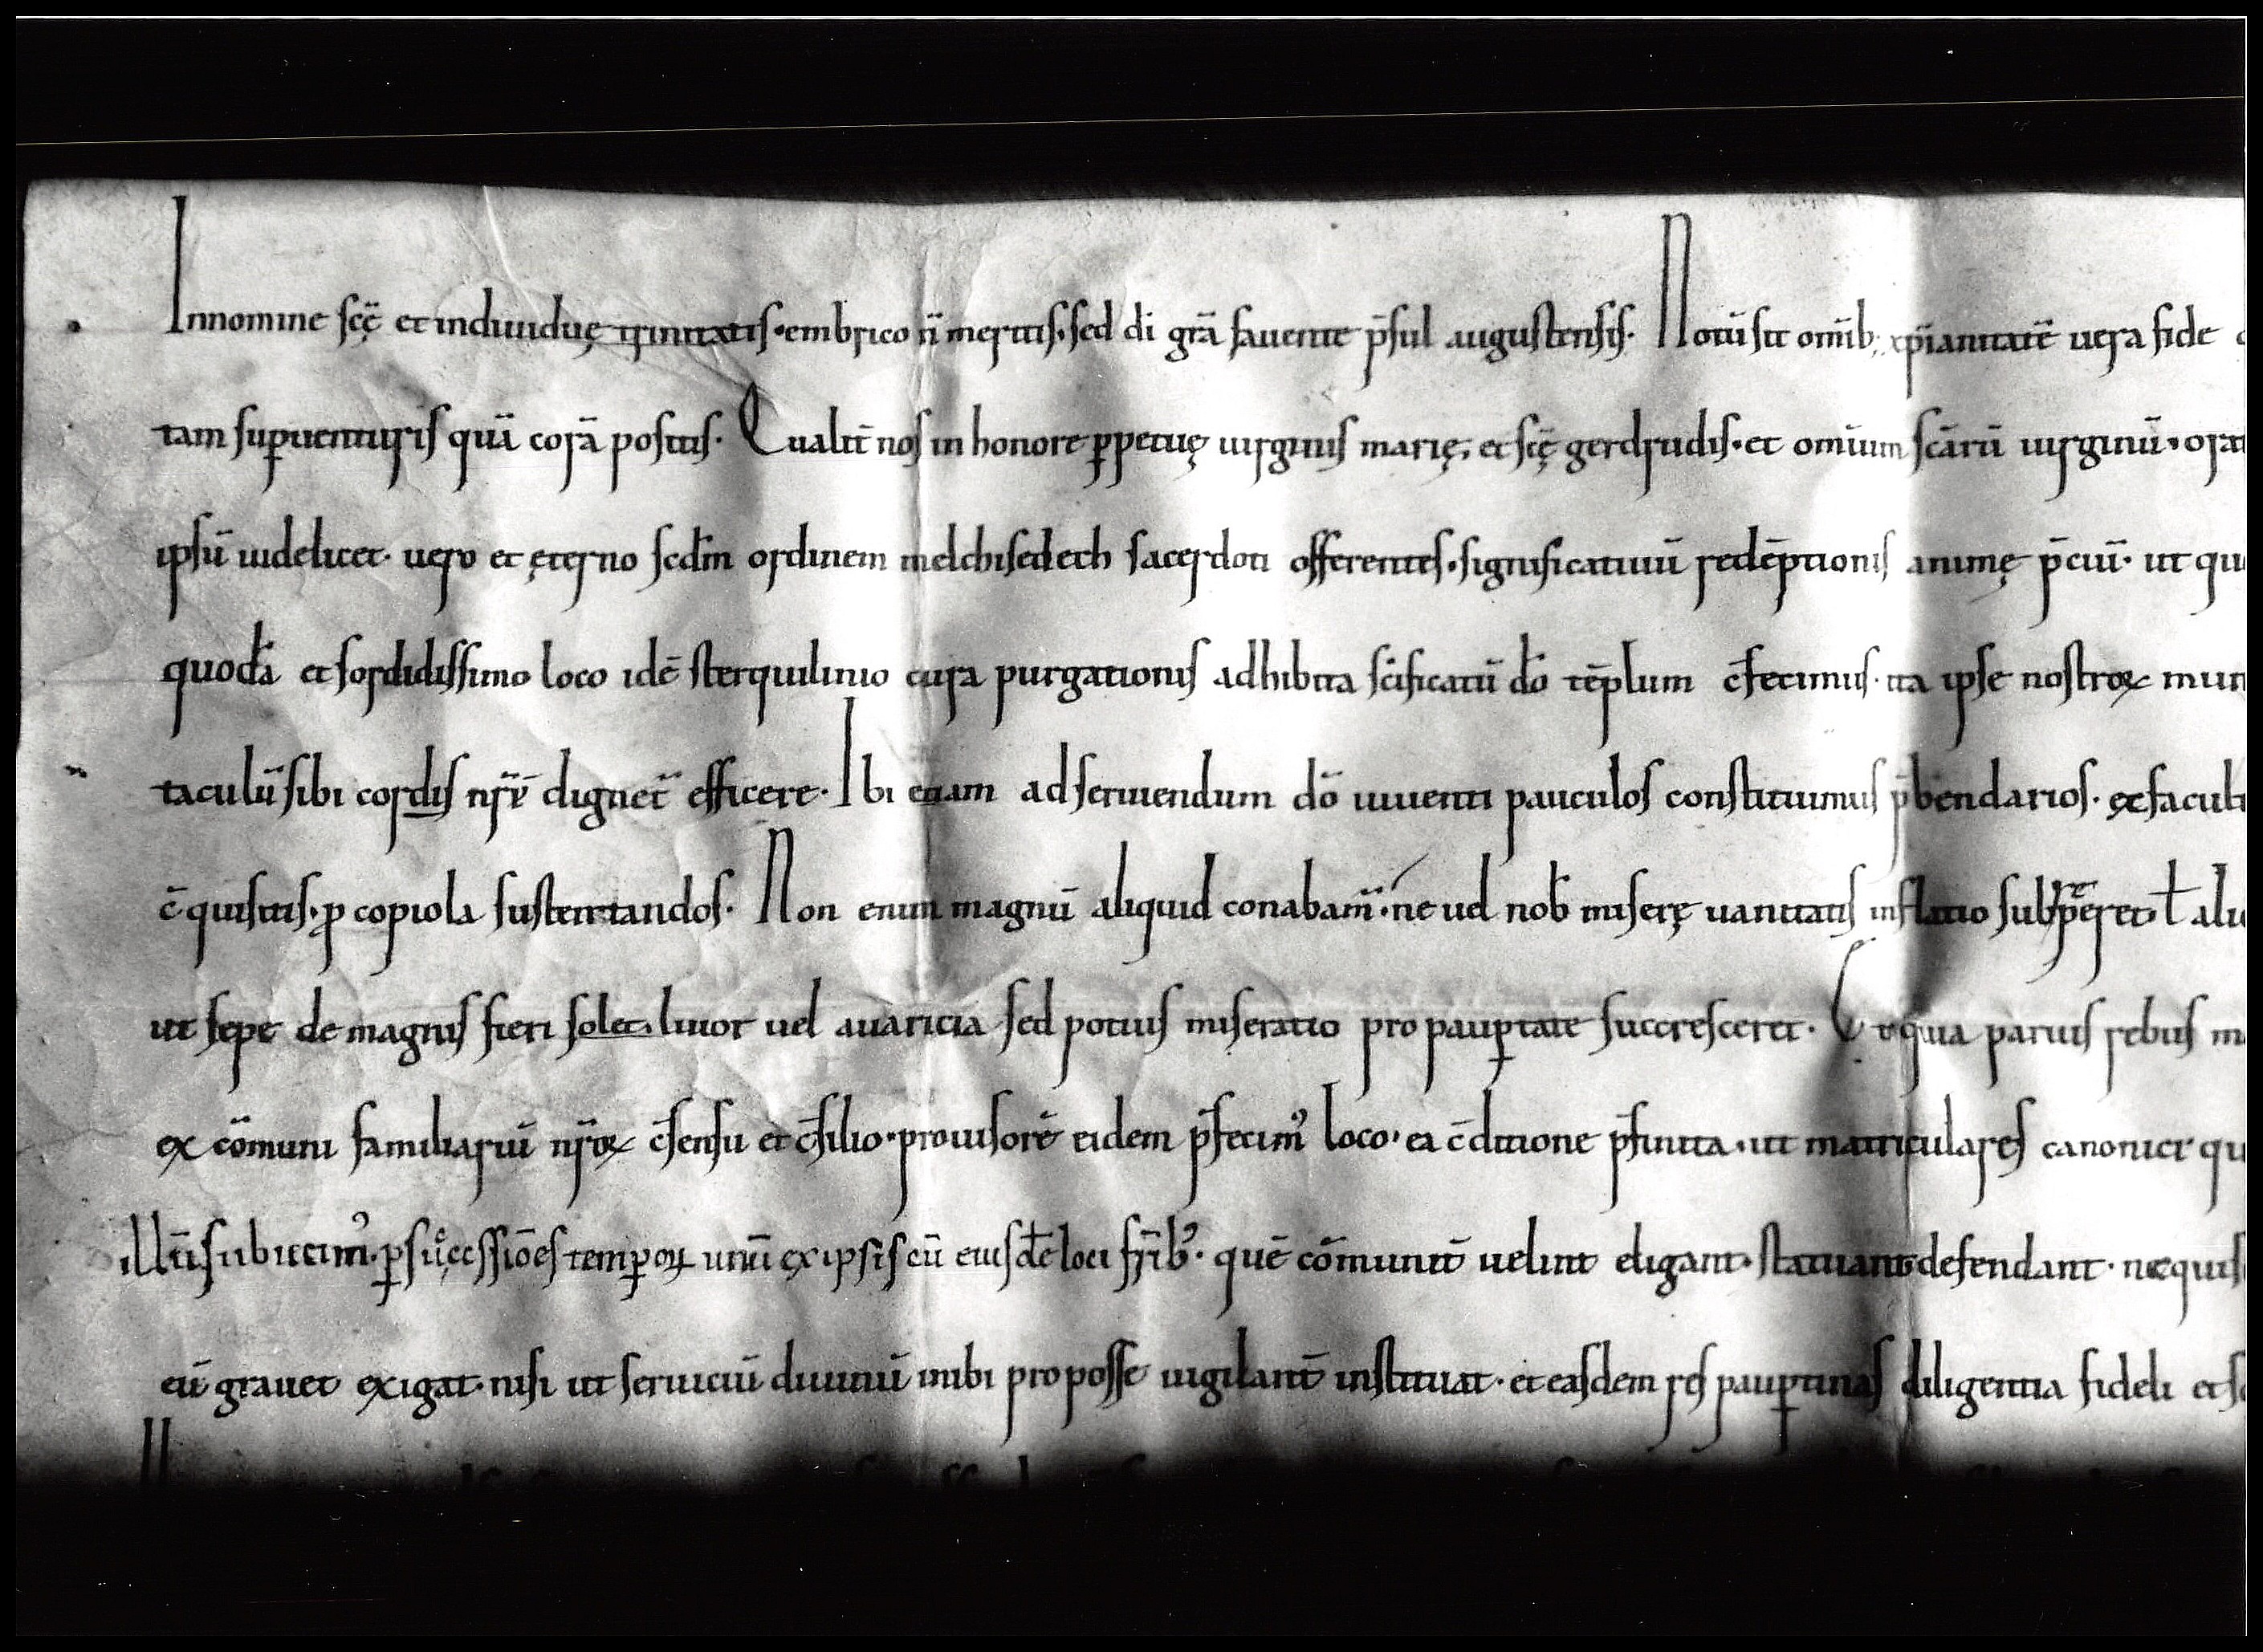 Innomine scę̄ et indiuiduę trinitatis · embrico n̄ meritis · sed di grā fauente p̄sul augustensis · Notū sit omīb; xp̄ianitatē uera fide
tam suꝑuenturis quā corā positis · Qualit̄ nos in honore ꝑpetuę uirginis marię, et scę̄ gerdrudis · et omīum scārū uirginū · orat
ipsū uidelicet · uero et ęterno scdm̄ ordinem melchisedech sacerdoti offerentes · significatiuū redēptionis animę p̄ciū · ut qu
quodā et sordidissimo loco idē sterquilinio cura purgationis adhibita sc̄ificatū dō tēplum c̄fecimus · ita ipse nostroꝝ mun
taculū sibi cordis nr̄i dignet̄ efficere · Ibi etiam ad seruiendum dō uiuenti pauculos constituimus p̄bendarios · ex facult
c̄quisitis · ꝓ copiola sustentandos · Non enim magnū aliquid conabam̄ · ne uel nob̄ miserę uanitatis inflatio subrꝑeret · ł ali
ut sepe de magnis fieri solet · liuor uel auaricia sed potius miseratio pro pauꝑtate succresceret · Et quia paruis rebus m
ex cōmuni familiariū nr̄oꝝ c̄sensu et c̄silio · prouisorē eidem p̄fecimꝰ loco · ea c̄ditione p̄finita · ut matriculares canonici qu
illū subiecimꝰ · ꝑ succ̨essiōes temꝑoꝝ unū ex ipsis cū eiusdē loci fr̄ibꝰ · quē cōmunit̄ uelint eligant · statuant defendant · nec quis
eū grauet exigat · nisi ut seruiciū diuinū inibi pro posse uigilant̄ instituat · et easdem res pauꝑtinas diligentia fideli et s